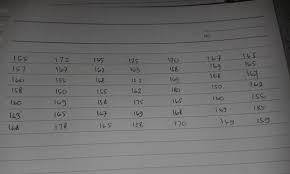 155 172 155 175 170 167 165
157 167 162 163 158 169 165
160 156 168 152 169 168 162
158 150 155 162 180 150 162
160 169 158 175 165 160 155
163 165 167 169 168 150
168 178 165 158 170 169 159